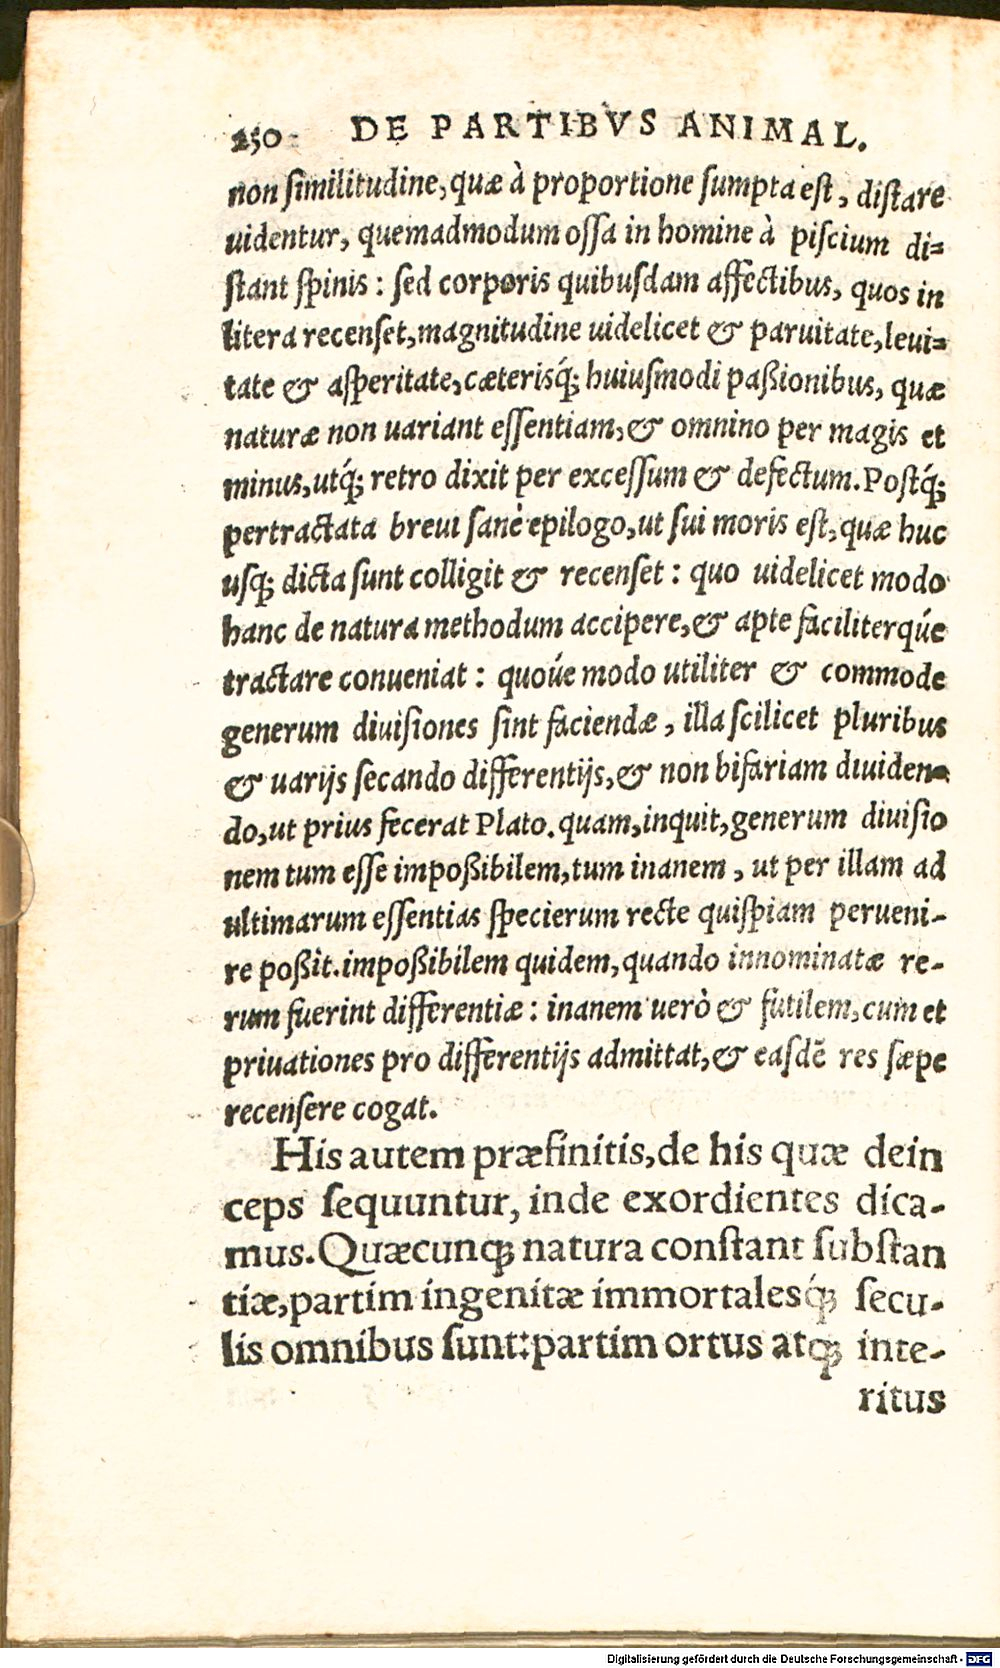 250 DE PARTIBVS ANIMAL.
non ſimilitudine, quæ à proportione ſumpta eſt, diſtare
uidentur, quemadmodum oſſa in homine à piſcium di-
ſtant ſpinis: ſed corporis quibuſdam affectibus, quos in
litera recenſet, magnitudine uidelicet & paruitate, leui-
tate & aſperitate, cæterisq́; huiuſmodi paßionibus, quæ
naturæ non uariant eſſentiam, & omnino per magis et
minus, utq́; retro dixit per exceſſum & defectum. Poſtq́;
pertractata breui ſanè epilogo, ut ſui moris eſt, quæ huc
uſq; dicta sunt colligit & recenſet: quo uidelicet modo
hanc de natura methodum accipere, & apte faciliterqúe
tractare conueniat: quoúe modo utiliter & commode
generum diuiſiones ſint faciendæ, illa ſcilicet pluribus
& uarijs ſecando differentijs, & non bifariam diuiden-
do, ut prius fecerat Plato. quam, inquit, generum diuiſio
nem tum eſſe impoßibilem, tum inanem, ut per illam ad
ultimarum eſſentias ſpecierum recte quiſpiam perueni-
re poßit. impoßibilem quidem, quando innominatæ re-
rum fuerint differentiæ: inanem uerò & futilem, cum et
priuationes pro differentijs admittat, & eaſdē res ſæpe
recenſere cogat.
His autem præfinitis, de his quæ dein
ceps ſequuntur, inde exordientes dica-
mus. Quæcunq; natura conſtant ſubſtan
tiæ, partim ingenitæ immortalesq́; ſecu-
lis omnibus ſunt: partim ortus atq; inte-
ritus
Digitalisierung gefördert durch die Deutsche Forschungsgemeinschaft - DFG